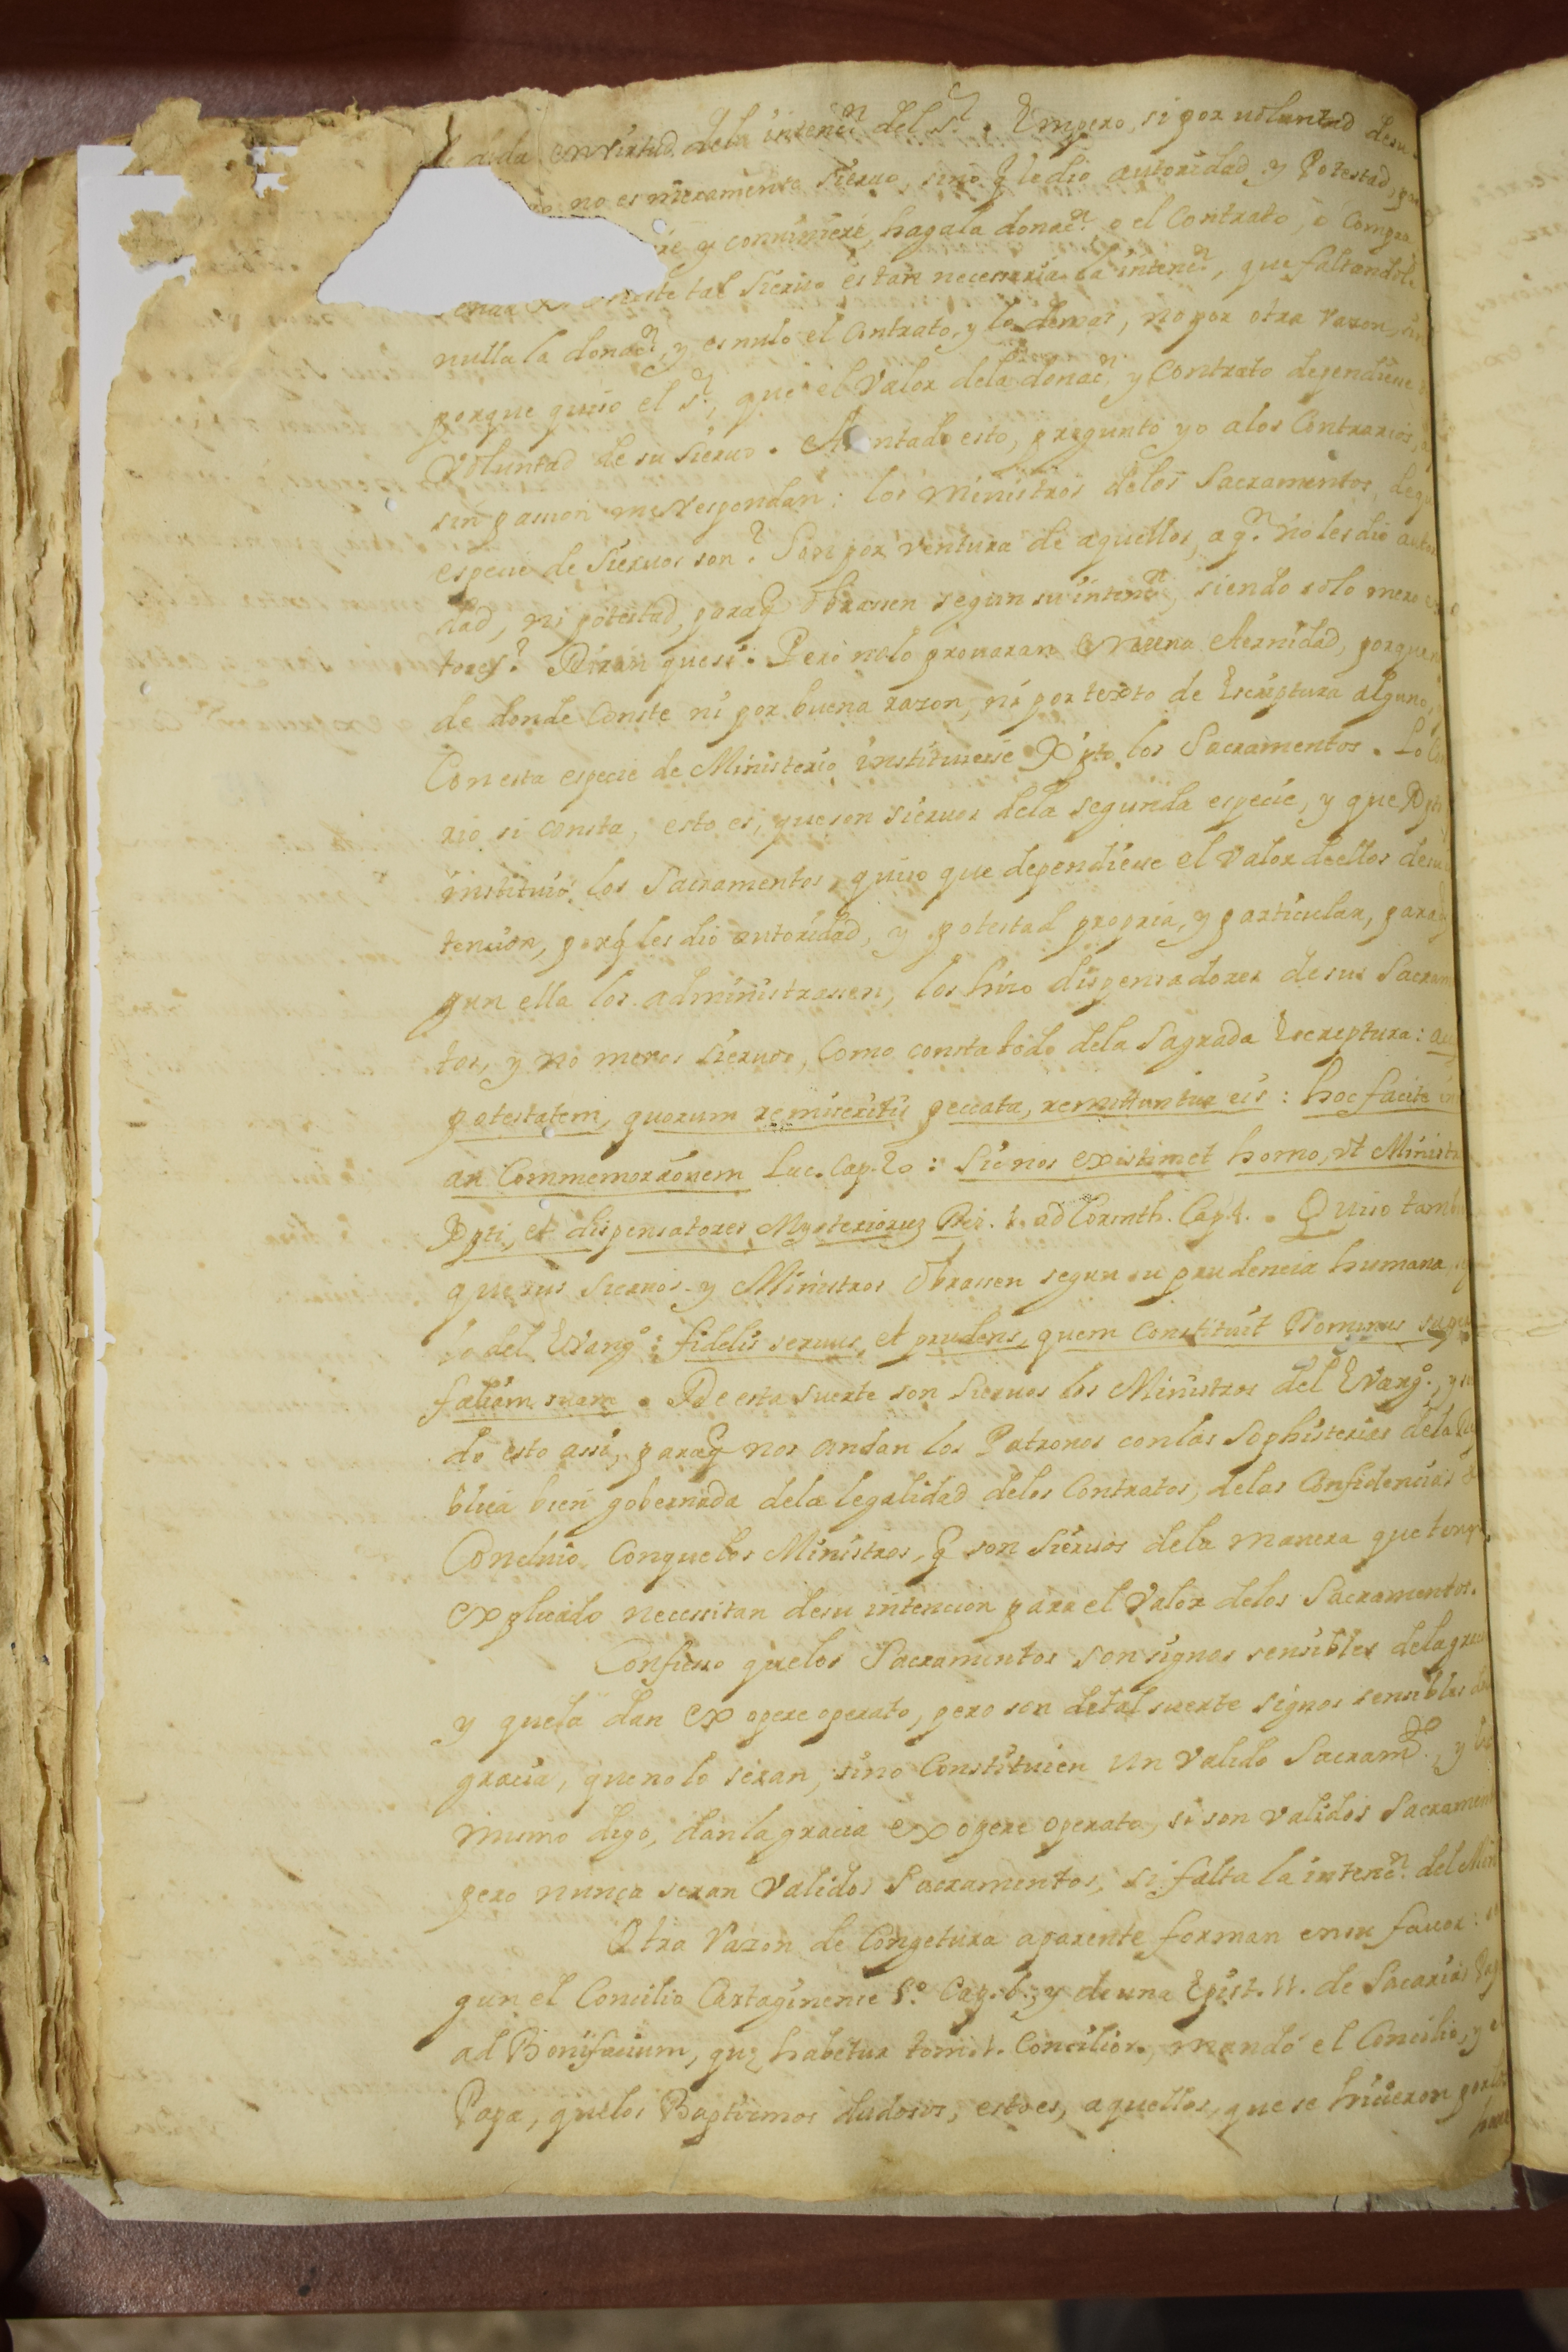 dada en virtud dela intencⁿ del Sʳ. Empero, si por voluntad desu
no es meramente sieruo, sino q̃ le dio autoridad, y Potestad, pa
re y conuiniere, haga la donacⁿ, o el Contrato, o Compra
este tal sieruo es tan necessaria la intencⁿ, que faltandole
nulla la donacⁿ, y es nulo el Contrato, y lo demas, no por otra razon, sin
porque quiso el Sʳ, que el Valor dela donacⁿ, y Contrato dependiesse
Voluntad de su sieruo. Assentado esto, pregunto yo alos Contrarios,
sin passion me respondan: los Ministros delos Sacramentos, deq
especie de sieruos son? Son por ventura de aquellos, a qⁿ no les dio autor
dad, ni potestad, paraq̃ obrassen segun su intencⁿ, siendo solo mero
tores? Diran quesi. Pero nolo prouaran en una eternidad, porque
de donde Conste ni por buena razon, ni por texto de Escriptura alguno,
Con esta especie de Ministerio instituiesse Xpto los Sacramentos. Lo Con
rio si consta, esto es, queson sieruos dela segunda especie, y que Xpto
instituio los Sacramentos, quiso que dependiesse el Valor deellos desu
tencion, porq̃ les dio autoridad, y potestad propria, y particular, paraq̃
gun ella los administrassen, los hizo dispensadores desus Sacramen
tos, y no meros sieruos, Como consta todo dela Sagrada Escreptura:
potestatem, quorum remiseritis peccata, remittuntur eis: hoc facite in
am Commemorãonem Luc. Cap. 20: Sic nos existimet homo, vt Ministros
Xpti, et dispensatores Mysterioruȝ Dei. 1. ad Corinth. Cap. 4. Quiso tambi
que sus sieruos y Ministros obrassen segun su prudencia humana,
lo del Euangº: fidelis seruus, et prudens, quem Constituit Dominus supra
faliam suam. De esta suerte son sieruos los Ministros del Euangº, y
do esto assi, paraq̃ nos andan los Patronos con las Sophisterias dela Rep
blica bien gobernada dela legalidad delos Contratos, delas Confidencias
Concluio Conquelos Ministros, q̃ son sieruos dela manera que tengo
explicado necessitan desu intencion para el Valor delos Sacramentos.
Confiesso quelos Sacramentos son signos sensibles dela gracia
y quela dan ex opere operato, pero son detal suerte signos sensibles dela
gracia, que no lo seran, sino Constituien un valido Sacramᵗᵒ, y lo
mismo digo, dan la gracia ex opere operato, si son validos Sacramen
pero nunca seran validos Sacramentos, si falta la intencⁿ del Min
Otra razon de Congetura aparente forman en su fauor: se
gun el Concilio Cartaginense 5º Cap. 6. y de una Epist. 11. de Sacarias Papa
ad Bonifacium, quȩ habetur tomo 1. Concilior., mandó el Concilio, y el
Papa, quelos Baptismos dudosos, esto es, aquellos, que se hicieron por los